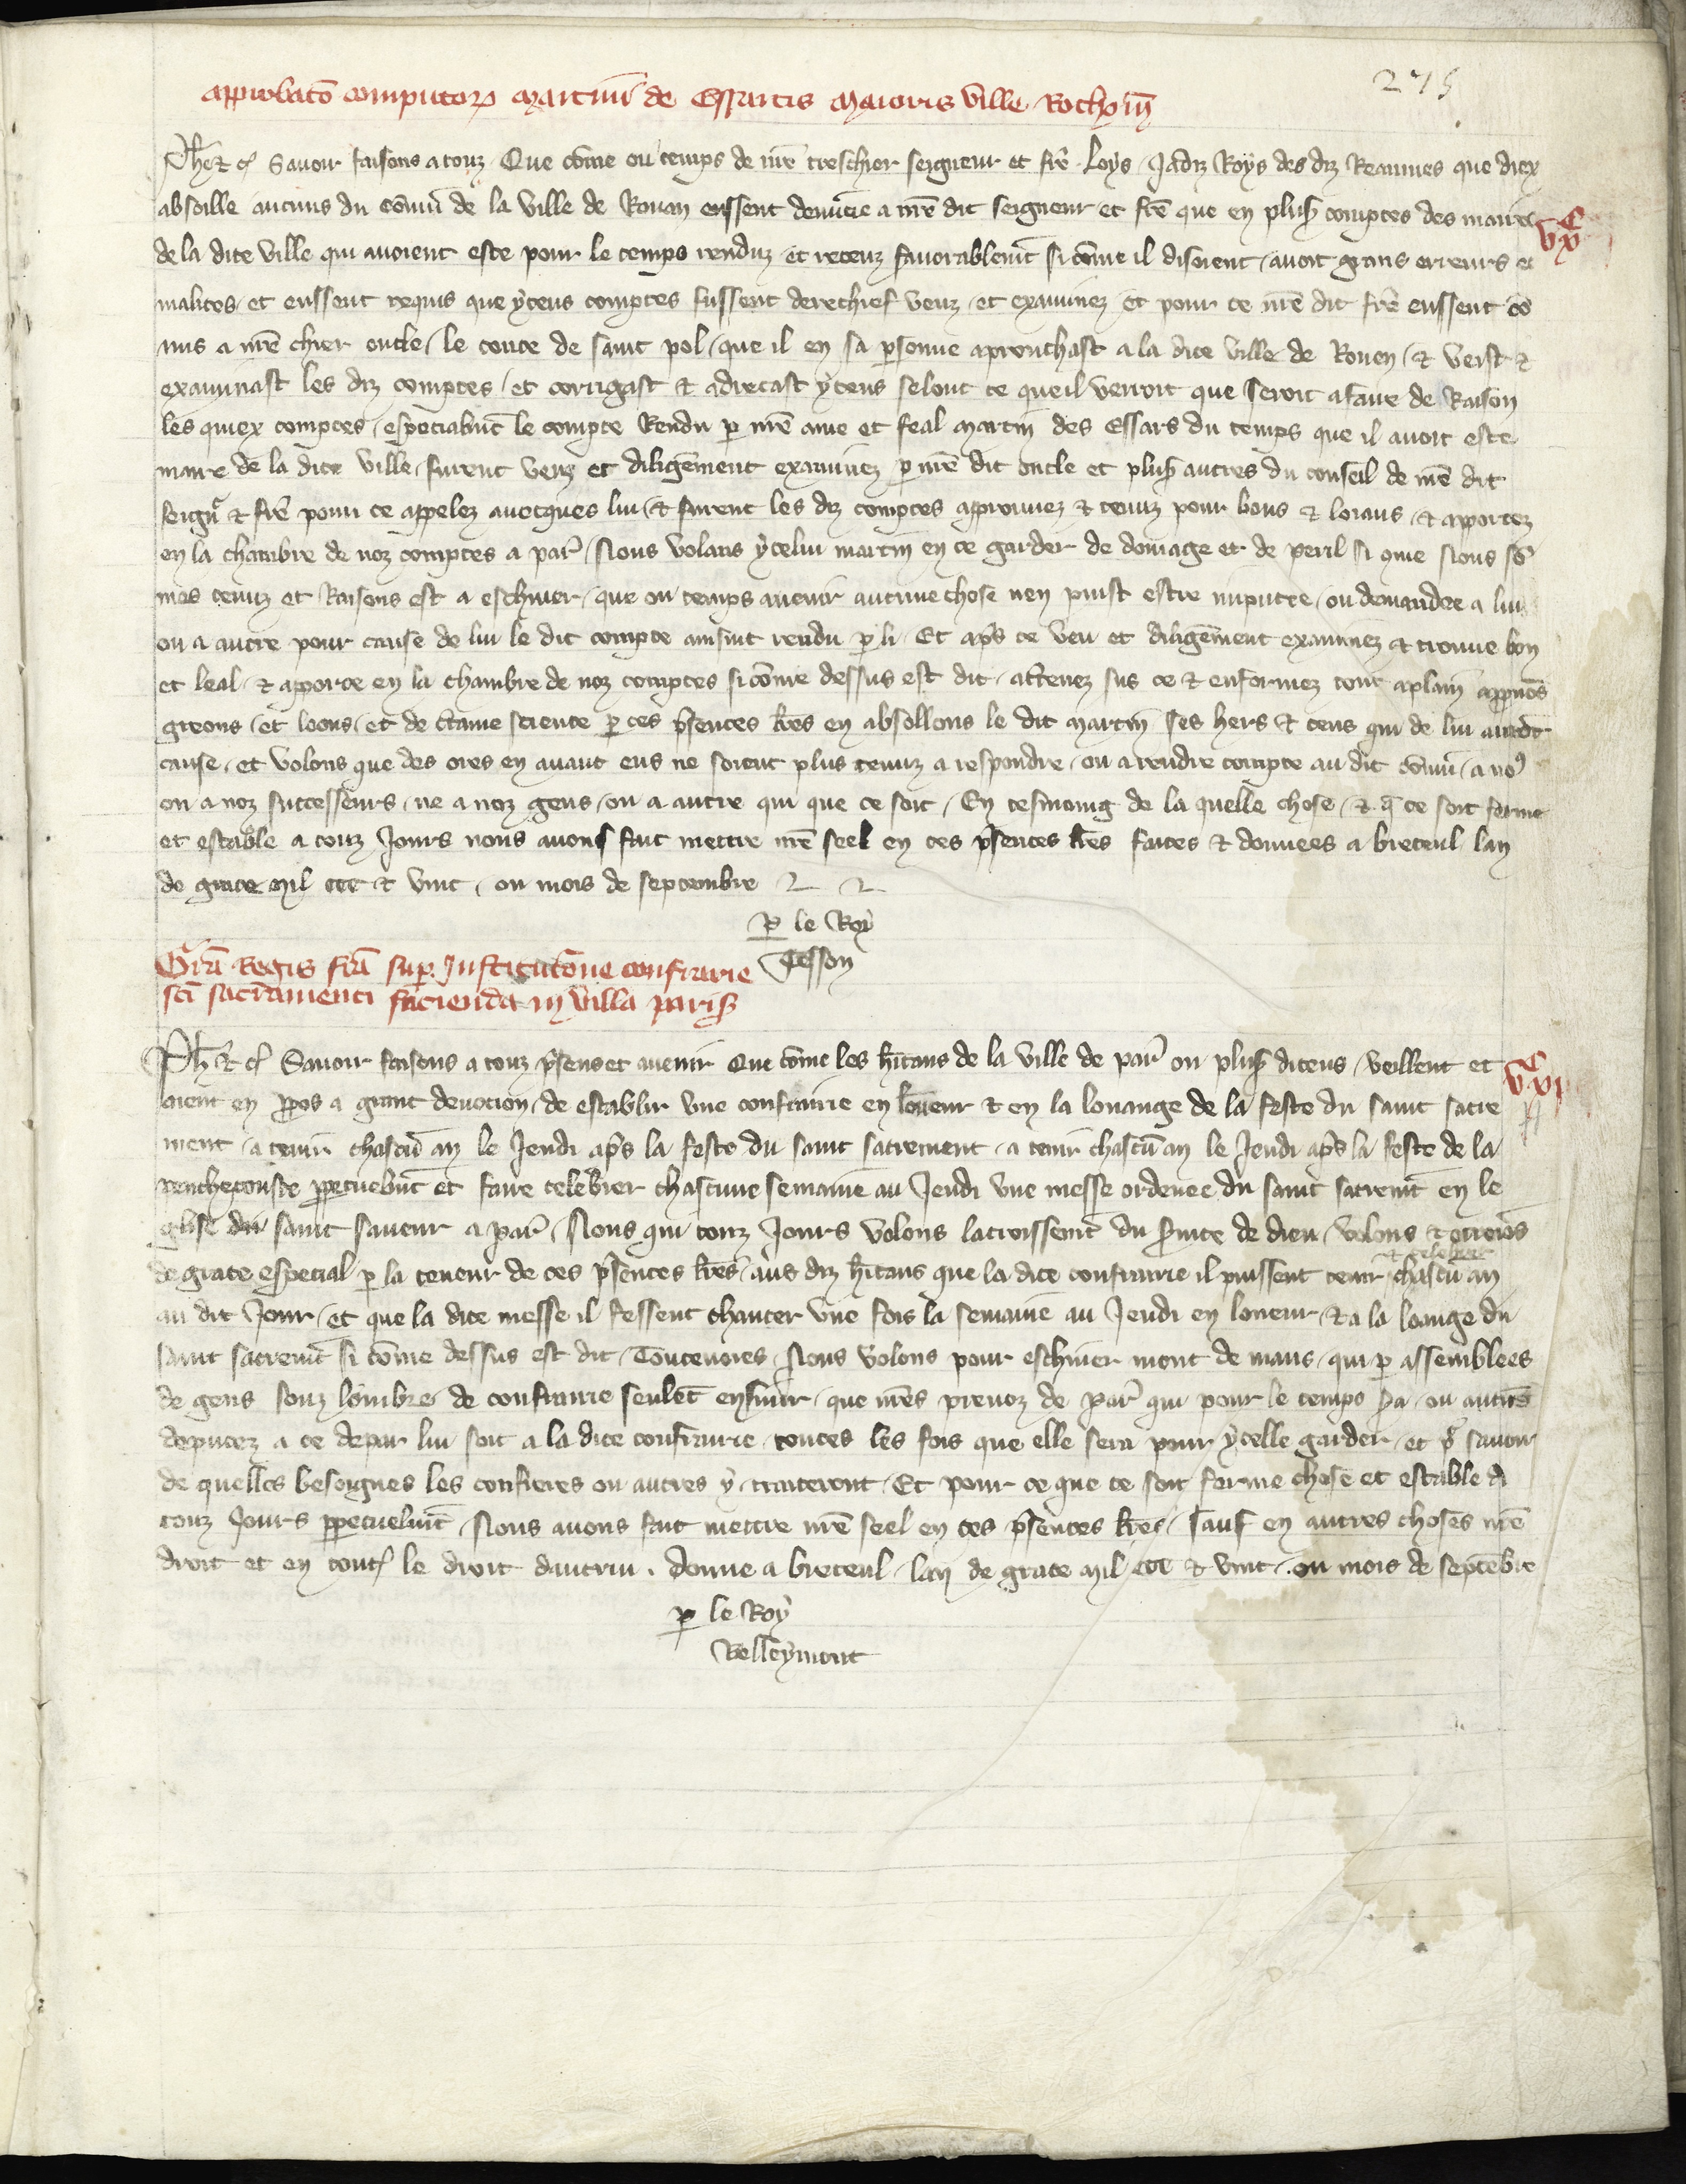 275
Approbatō computoꝝ Martini de Essartis Maioris ville Rothom̄
Ph̄e ⁊ cꝭ Sauoir faisons a touz Que cōme ou temps de nr̄e treschier seigneur et fr̄e Loys Jadiz Roys des diz Reaumes que diex
absoille aucuns du cōmū de la ville de Rouan eussent denūcie a nr̄e dit seigneur et fr̄e que en plusꝭ comptes des maires
de la dite ville qui auoient este pour le temps renduz et receuz fauorablemt̄ si cōme il disoient auoit grans erreurs et
vᶜx
malices et eussent requis que yceus comptes fussent derechief veuz et examinez et pour ce nr̄e dit fr̄e eussent cō
mis a nr̄e chier oncle le conte de saint pol que il en sa ꝑsonne aprouchast a la dite ville de Rouen ⁊ veist ⁊
examinast les diz comptes et corrigast ⁊ adrecast yceus selonc ce que il verroit que seroit a faire de Raison
les quiex comptes especiabmt̄ le compte Rendu ꝑ nr̄e ame et feal martin des Essars du temps que il auoit este
maire de la dite ville furent veuz et diligēment examinez ꝑ nr̄e dit oncle et plusꝭ autres du conseil de nr̄e dit
seignr̄ ⁊ fr̄e pour ce appelez auecques lui ⁊ furent les diz comptes approuuez ⁊ tenuz pour bons ⁊ loiaus ⁊ apportez
en la chambre de noz comptes a par̄ Nous volans ycelui martin en ce garder de domage et de peril si ꝯme Nous sō
mes tenuz et Raisons est a eschiuer que ou temps auenir aucune chose nen puist estre imputee ou demandee a lui
ou a autre pour cause de lui le dit compte ainsint rendu ꝑ li Et ap̄s ce veu et diligēment examinez ⁊ trouue bon
et leal ⁊ apporte en la chambre de noz comptes si cōme dessus est dit attenez sus ce ⁊ enformez tout aplain appuōs
greons et loons et de c̄taine science ꝑ ces p̄sences lr̄es en absollons le dit martin ses hers ⁊ ceus qui de lui aurōt
cause et volons que des ores en auant eus ne soient plus tenuz a respondre ou a rendre compte au dit cōmū a noꝰ
ou a noz successeurs ne a noz gens ou a autre qui que ce soit En tesmoing de la quelle chose ⁊ q̄ ce soit ferme
et estable a touz Jours nous auons fait mettre nr̄e seel en ces p̄sences lr̄es faites ⁊ donnees a breteul lan
de grace mil ccc ⁊ vint ou mois de septembre
ꝑ le Roy
Tesson
Grā Regis frā sup Institutōne confrarie
sc̄i sacramenti facienda in villa parisꝭ
Ph̄ ⁊ cꝭ Sauoir faisons a touz p̄sens et auenir Que cōme les h̄itans de la ville de par̄ ou plusꝭ diceus veillent et
vᶜxi
aient en ꝓpos a grant deuocion de establir vne confrairie en lōneur ⁊ en la louange de la feste du saint sacre
ment a tenir chascū an le Jeudi ap̄s la feste du saint sacrement a tenir chascū an le Jeudi ap̄s la feste de la
penthecouste ꝑpetuebmt̄ et faire celebrer chascune semaine au Jeudi vne messe ordenee du saint sacremt̄ en le
glise du saint saueur a par̄ Nous qui touz Jours volons lacroissemt̄ du ſuice de dieu volons ⁊ otroiōs
de grace especial ꝑ la teneur de ces p̄sences lr̄es aus diz h̄itans que la dite confrairie il puissent tenir ⁊ celebrer chascū an
au dit Jour et que la dite messe il fessent chanter vne fois la semaine au Jeudi en loneur ⁊ a la loange du
saint sacremt̄ si cōme dessus est dit Toutenoies Nous volons pour eschiuer mout de maus qui ꝑ assemblees
de gens souz lombre de confrairie seulēt ensuiir que nr̄es preuoz de par̄ qui pour le temps ſa ou autres
deputez a ce depar lui soit a la dite confrairie toutes les fois que elle sera pour ycelle garder et pr̄ sauoir
de quelles besoignes les confreres ou autres y traiteront Et pour ce que ce soit ferme chose et estable a
touz Jours ꝑpetuelmt̄ Nous auons fait mettre nr̄e seel en ces p̄sences lr̄es sauf en autres choses nr̄e
droit et en toutꝭ le droit dautrui. donne a breteul lan de grace mil ccc ⁊ vint ou mois de septēbre
ꝑ le Roy
Belleymont